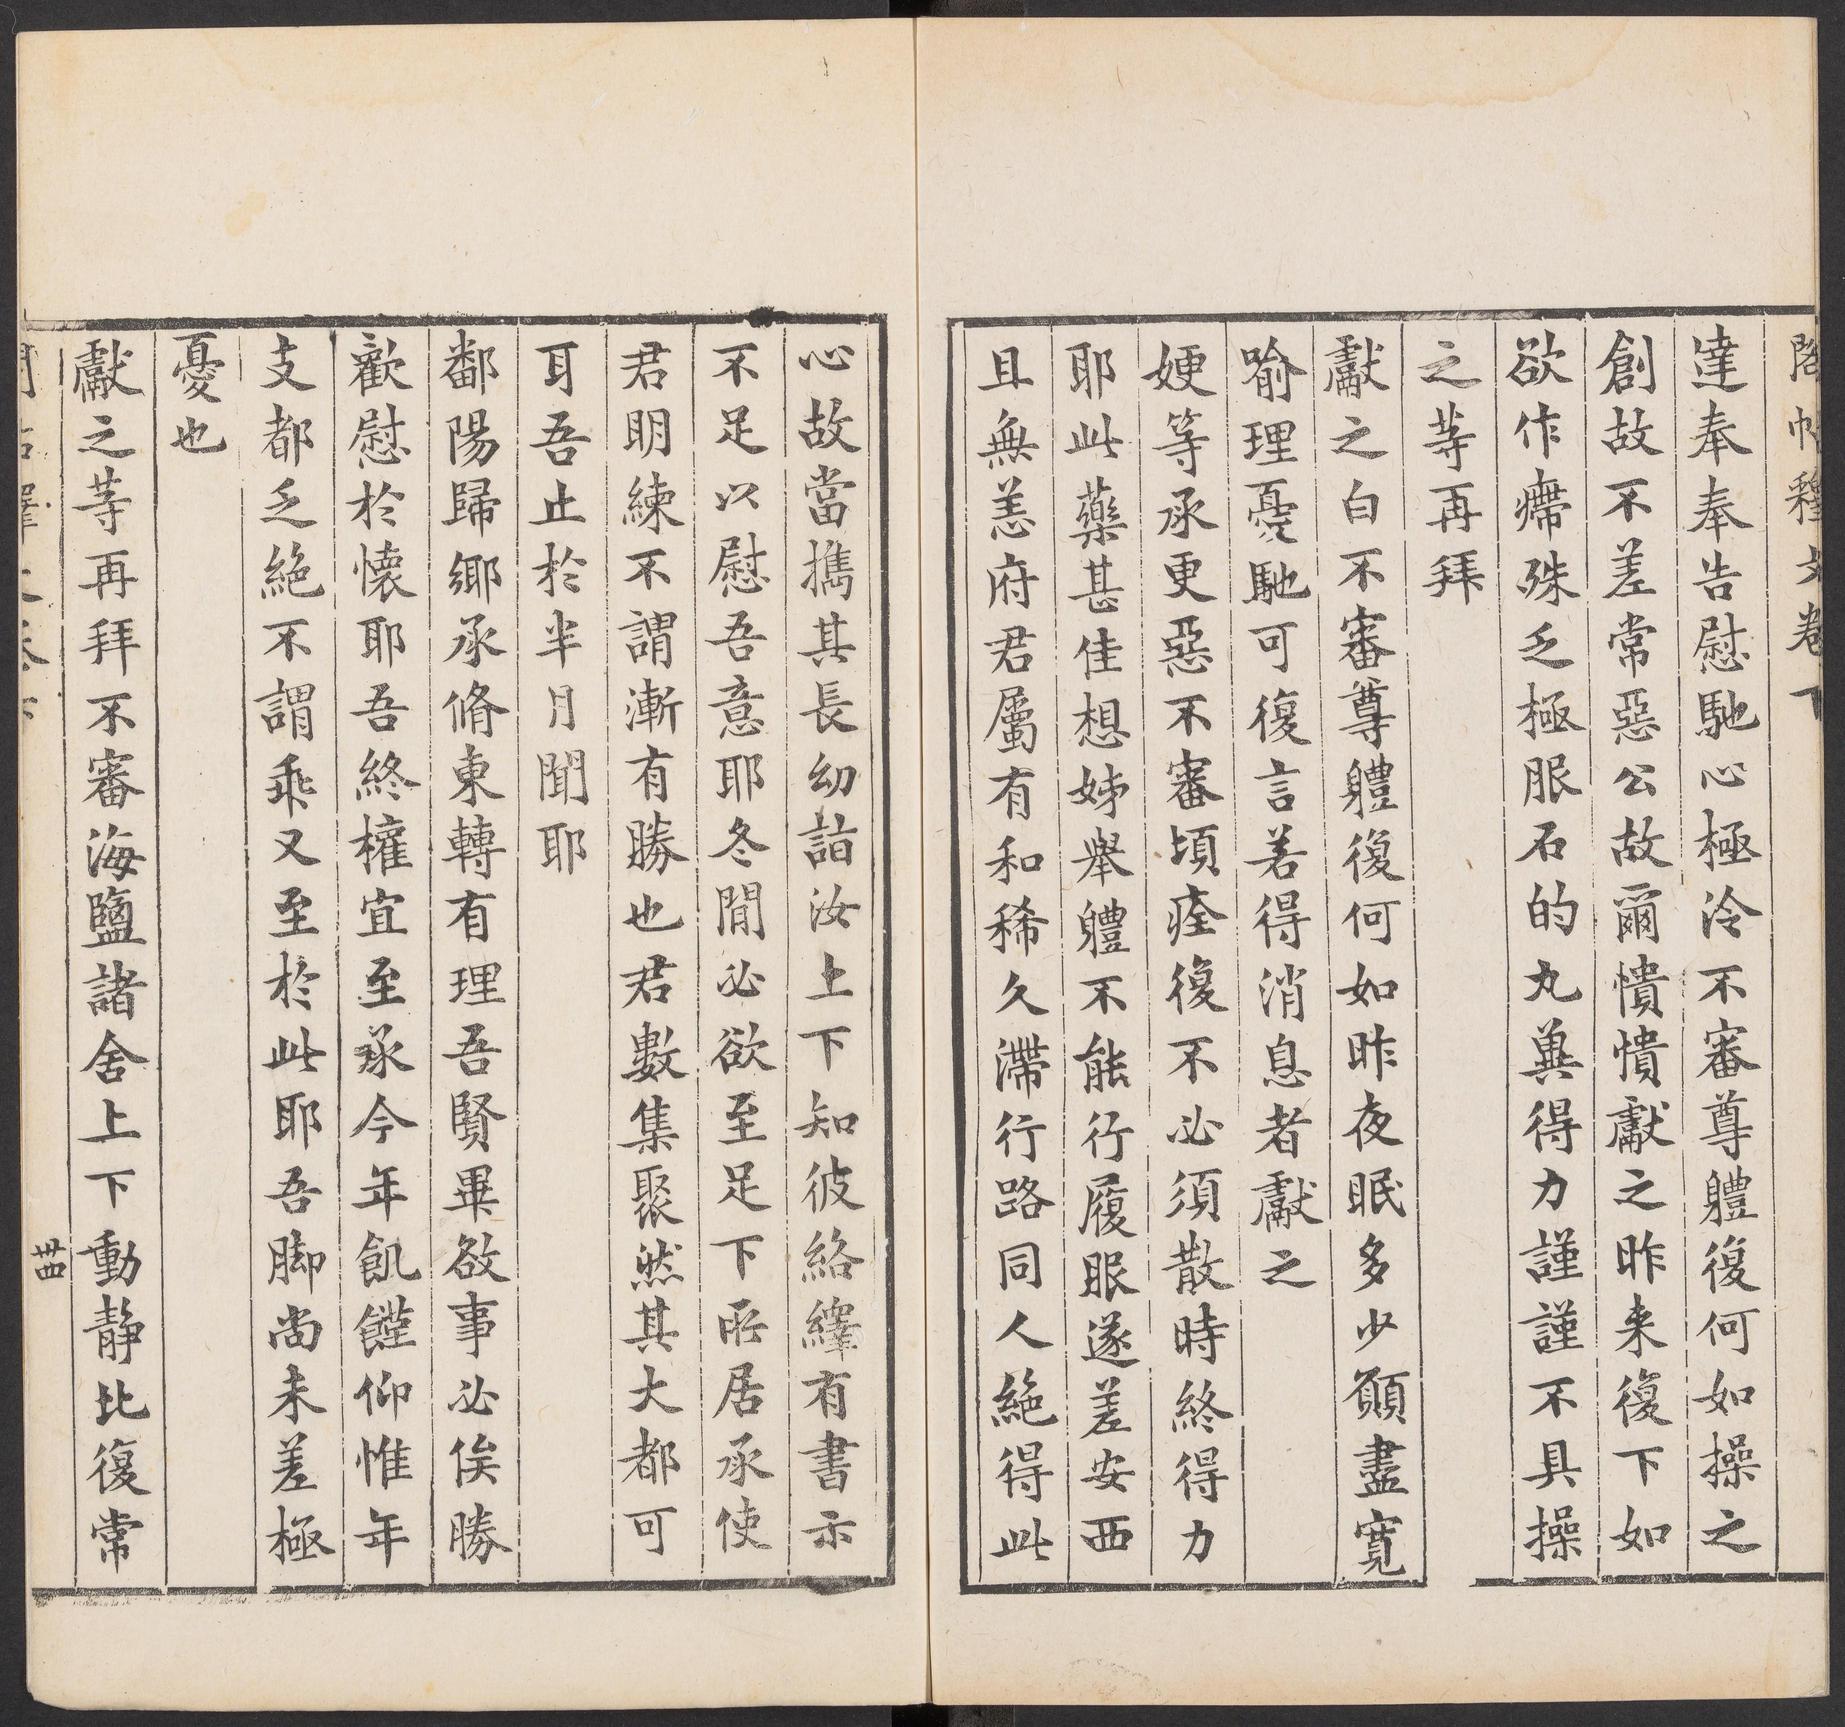 閣帖釋文卷下
達奉奉告慰馳心極冷不審尊軆復何如操之
創故不差常惡公故爾憒憒獻之昨来復下如
欲作㿃殊乏極服石的丸冀得力謹謹不具操
之等再拜
獻之白不審尊軆復何如昨夜眠多少願盡寬
喻理憂馳可復言若得消息者獻之
㛐等承更惡不審頃痊復不必須散時終得力
耶此藥甚佳想姊舉軆不能行履眠遂差安西
且無恙府君屬有和稀久滯行路同人絶得此
心故當擕其長幼詣汝上下知彼絡繹有書示
不足以慰吾意耶冬間必欲至足下所居承使
君明練不謂漸有勝也君數集聚然其大都可
耳吾止於半月聞耶
鄱陽歸鄉承脩東轉有理吾賢畢欲事必俟勝
歡慰於懐耶吾終權宜至承今年飢饉仰惟年
支都乏絶不謂乖又至於此耶吾脚尚未差極
憂也
獻之等再拜不審海鹽諸舍上下動静比復常
卌四